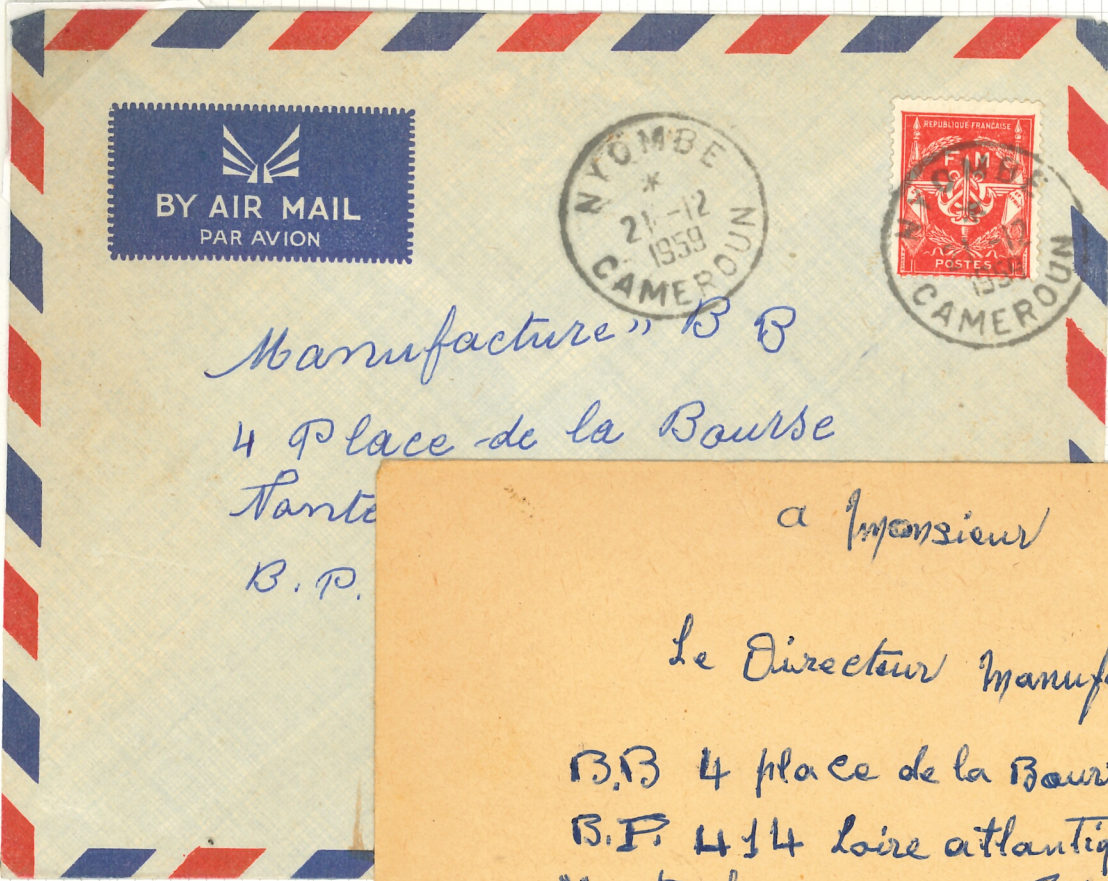 BY AIR MAIL
PAR AVION
NYOMBE
21-12
1959
CAMEROUN
REPUBLIQUE FRANÇAISE
F M
POSTES
NYOMBE
-12
1959
CAMEROUN
Manufacture " B B
4 Place de la Bourse
Nante
B.P.
a monsieur
Le Directeur Manuf
B.B 4 place de la Bour
B.P. 414 Loire atlantiq